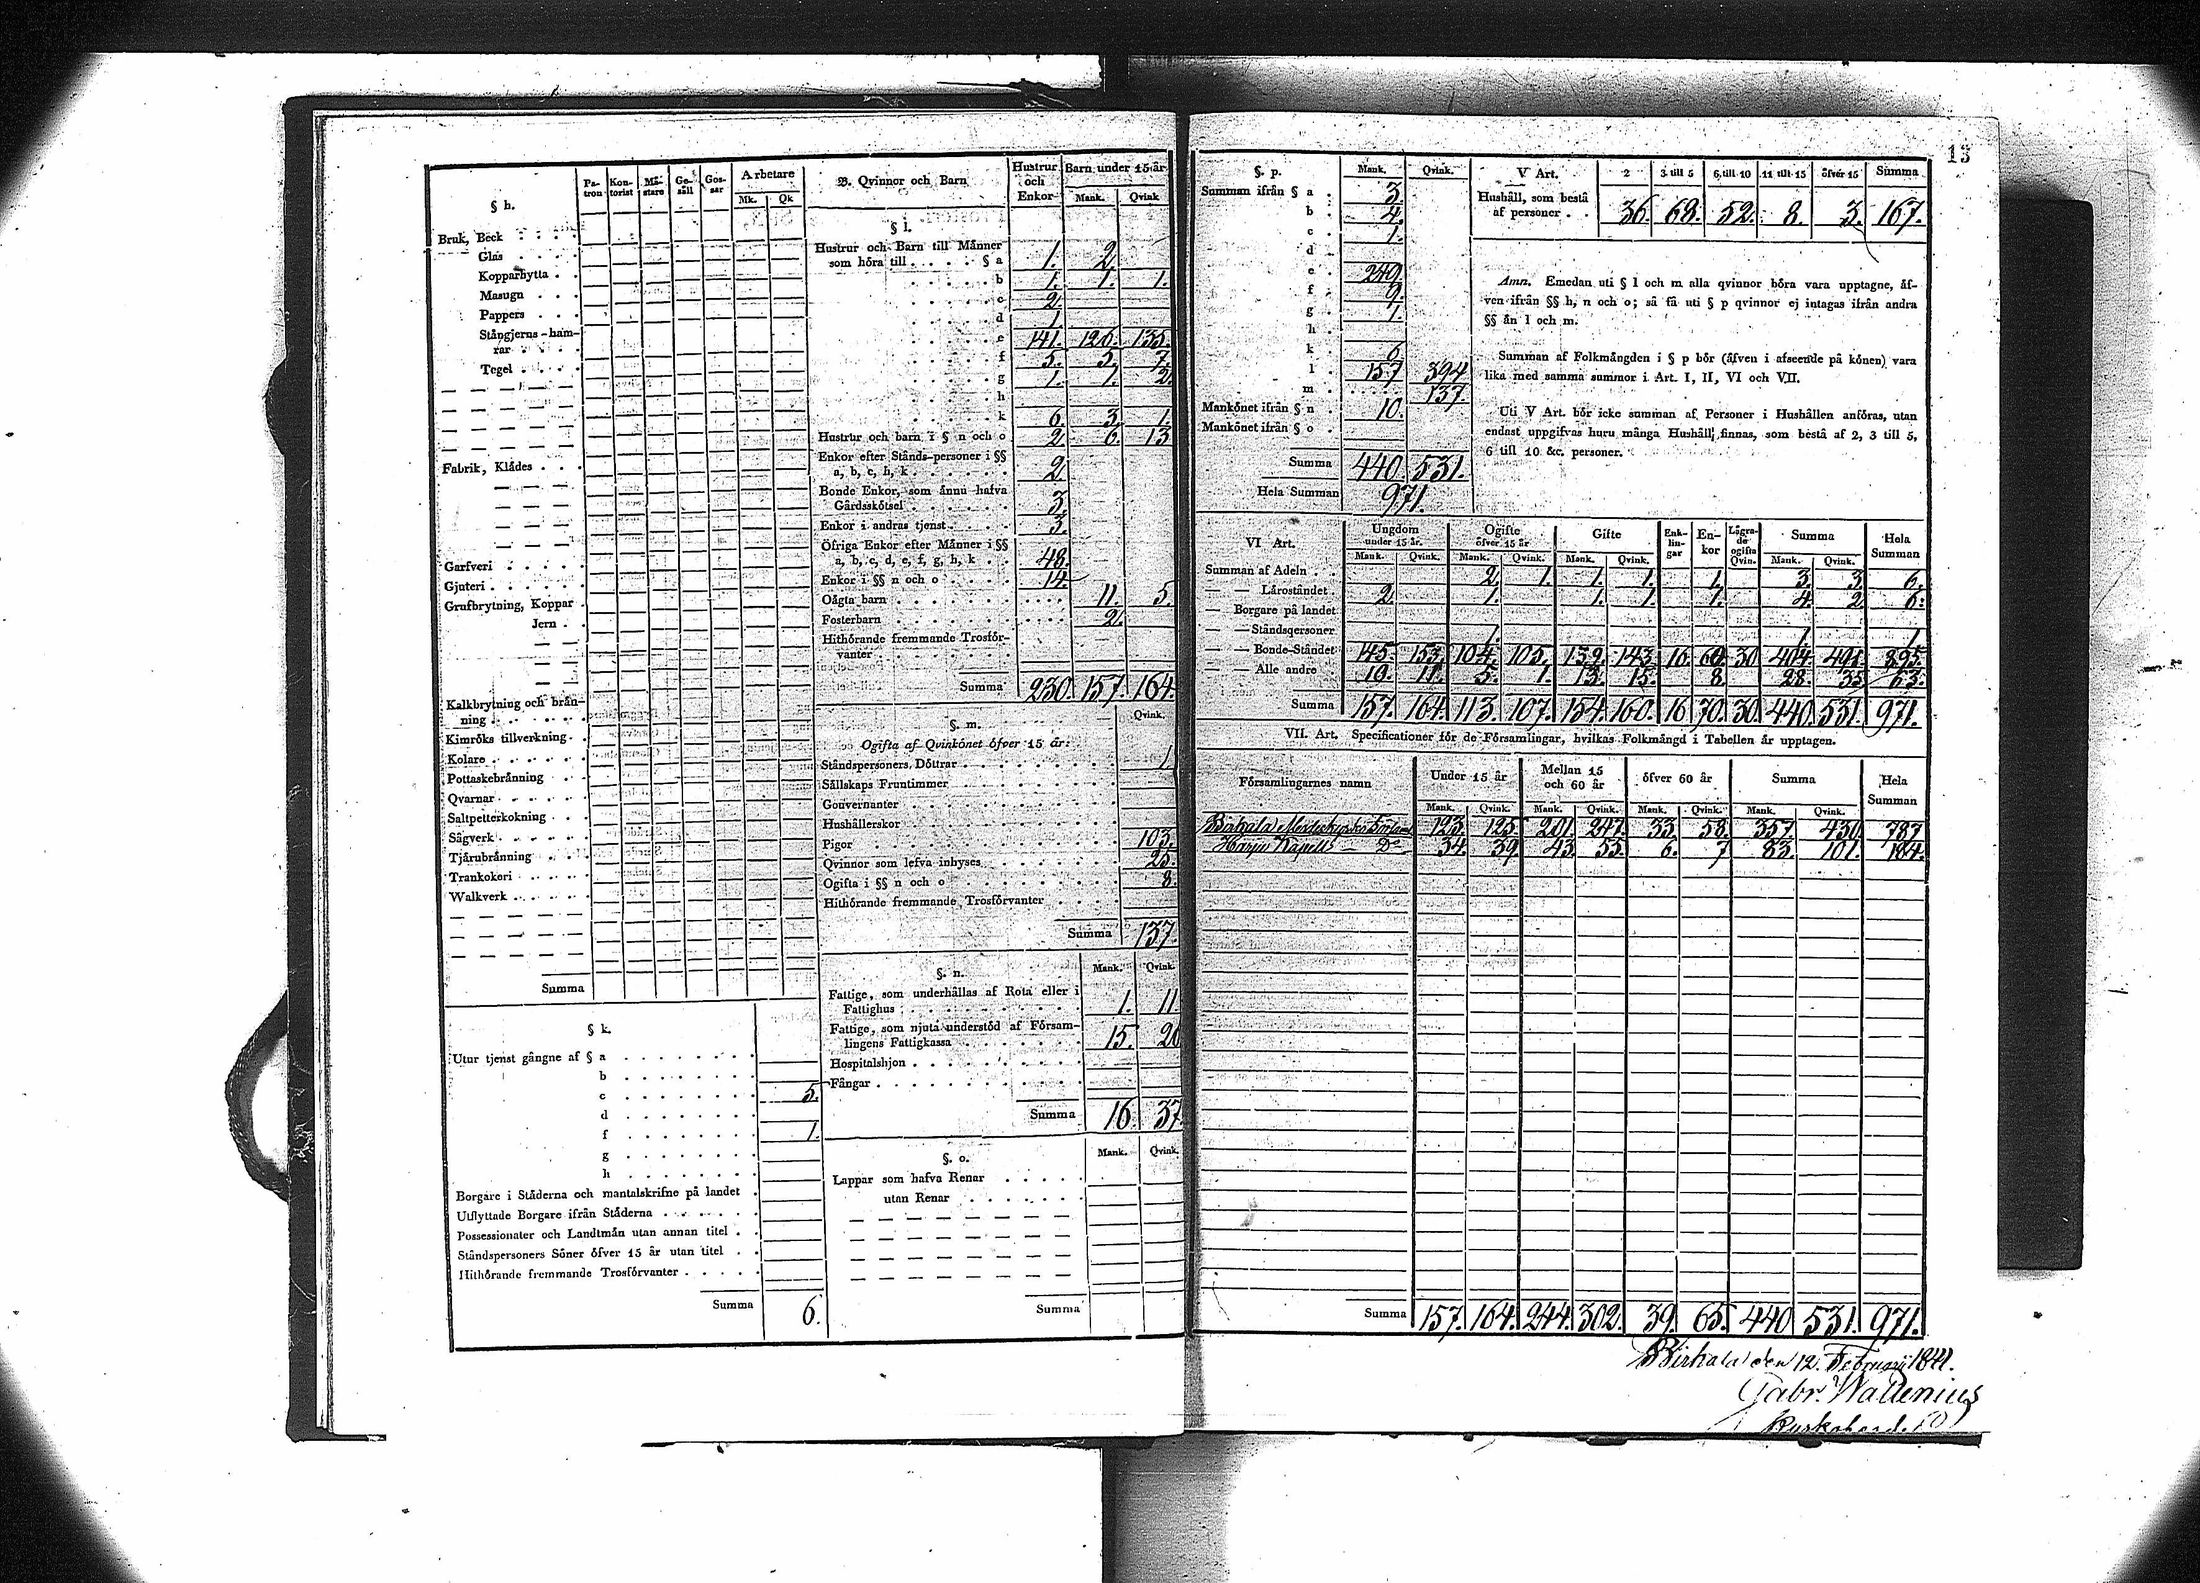 13
§ h.
Patron Kontorist Mästare Gesäll Gossar Arbetare
Mk. Qk
Bruk, Beck
Glas
Kopparhytta
Masugn
Pappers
Stångjerns-hamrar
Tegel
Fabrik, Klädes
Garfveri
Gjuteri
Grufbrytning, Koppar
Jern
Kalkbrytning och bränning
Kimröks tillverkning
Kolare
Pottaskebränning
Qvarnar
Saltpetterkokning
Sågverk
Tjärubränning
Trankokeri
Walkverk
Summa
§ k.
Utur tjenst gångne af § a
b
c 5.
d
f 1.
g
h
Borgare i Städerna och mantalskrifne på landet
Utflyttade Borgare ifrån Städerna
Possessionater och Landtmän utan annan titel
Ståndspersoners Söner öfver 15 år utan titel
Hithörande fremmande Trosförvanter
Summa 6.
B. Qvinnor och Barn
Hustrur och Enkor Barn under 15 år
Mank. Qvink
§ l.
Hustrur och Barn till Männer
som höra till § a 1. 2.
b 1. 1. 1.
c 2.
d 1.
e 141. 126. 135.
f 5. 5. 7.
g 1. 1. 2.
h
k 6. 3. 1.
Hustrur och barn i § n och o 2. 6. 13
Enkor efter Stånds-personer i §§
a, b, c, h, k 2.
Bonde Enkor, som ännu hafva
Gårdsskötsel 3.
Enkor i andras tjenst 3.
Öfriga Enkor efter Männer i §§
a, b, c, d, e, f, g, h, k 48.
Enkor i §§ n och o 14
Oägta barn 11. 5.
Fosterbarn 2.
Hithörande fremmande Trosförvanter
Summa 230. 157. 164.
§. m. Qvink.
Ogifta af Qvinkönet öfver 15 år:
Ståndspersoners Döttrar 1
Sällskaps Fruntimmer
Gouvernanter
Hushållerskor
Pigor 103.
Qvinnor som lefva inhyses 25.
Ogifta i §§ n och o 8.
Hithörande fremmande Trosförvanter
Summa 137.
§. n. Mank. Qvink.
Fattige, som underhållas af Rota eller i
Fattighus 1. 11.
Fattige, som njuta understöd af Församlingens
Fattigkassa 15. 26
Hospitalshjon
Fångar
Summa 16. 37.
§. o. Mank. Qvink.
Lappar som hafva Renar
utan Renar
Summa
§. p. Mank. Qvink.
Summan ifrån § a 3.
b 4.
c 1.
d
e 249.
f 9.
g 1.
h
k 6.
l 157 394
m 137.
Mankönet ifrån § n 10.
Mankönet ifrån § o
Summa 440. 531.
Hela Summan 971.
V Art. 2 3 till 5 6 till 10 11 till 15 öfver 15 Summa
Hushåll, som bestå
af personer 36. 68. 52. 8. 3. 167.
Anm. Emedan uti § l och m alla qvinnor böra vara upptagne, äfven
ifrån §§ h, n och o; så få uti § p qvinnor ej intagas ifrån andra
§§ än l och m.
Summan af Folkmängden i § p bör (äfven i afseende på könen) vara
lika med samma summor i Art. I, II, VI och VII.
Uti V Art. bör icke summan af Personer i Hushållen anföras, utan
endast uppgifvas huru många Hushåll finnas, som bestå af 2, 3 till 5,
6 till 10 &c. personer.
VI Art. Ungdom under 15 år. Ogifte öfver 15 år Gifte Enklingar Enkor Lägrade ogifta Qvin. Summa Hela Summan
Mank. Qvink. Mank. Qvink. Mank. Qvink. Mank. Qvink.
Summan af Adeln 2. 1. 1. 1. 1. 3. 3. 6.
— — Läroståndet 2. 1. 1. 1. 1. 4. 2. 6.
— Borgare på landet
— — Ståndspersoner 1. 1. 1.
— — Bonde-Ståndet 145. 153. 104. 105. 139. 143. 16. 60. 30 404. 491. 895.
— — Alle andre 10. 11. 5. 1. 13. 15. 8. 28. 35 63.
Summa 157. 164. 113. 107. 154. 160. 16 70. 30 440. 531. 971.
VII. Art. Specificationer för de Församlingar, hvilkas Folkmängd i Tabellen är upptagen.
Församlingarnes namn Under 15 år Mellan 15 och 60 år öfver 60 år Summa Hela Summan
Mank. Qvink. Mank. Qvink. Mank. Qvink. Mank. Qvink.
Birkala Moderkyrko Församl 123. 125. 201. 247. 33. 58. 357. 430. 787.
Harju Kapell — Do 34. 39. 43. 55. 6. 7 83. 101. 184.
Summa 157. 164. 244. 302. 39. 65. 440. 531. 971.
Birkala den 12. Februarii 1841.
Gabr. Wallenius